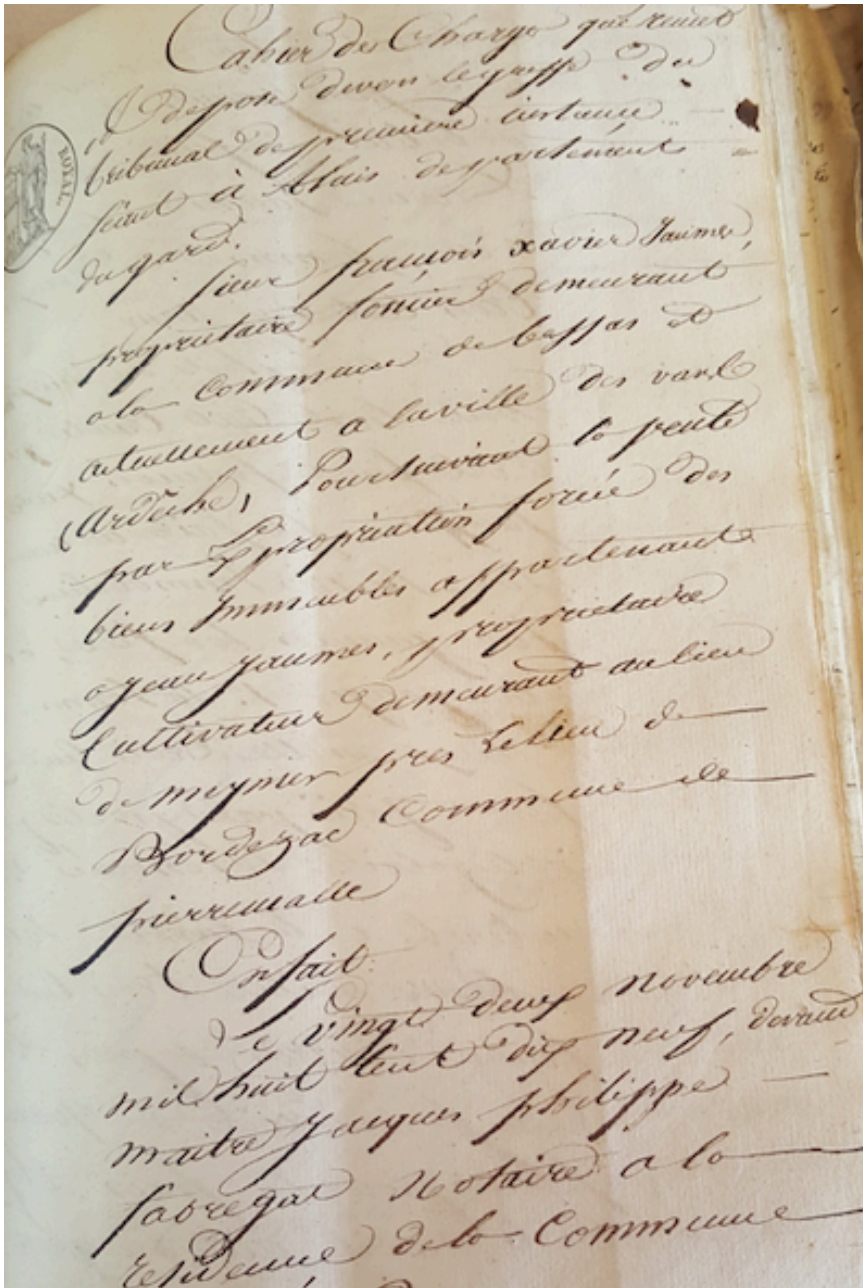 Cahier des Charges que remet
et depose devers le greffe du
tribunal de premiere instance
séant à Alais departement
du gard.
sieur françois xavier Jaumes,
proprietaire foncier demeurant
a la commune de bessas et
actuellement a la ville des vans
(Ardèche), Poursuivant la vente
par Expropriation forcée des
biens Immeubles appartenants
a jean jaumes, proprietaire
Cultivateur demeurant au lieu
de meynier pres Le lieu de
Bordezac Commune de
pierremalle
En fait.
Le vingt deux novembre
mil huit Cent dix neuf, devand
maitre Jacques philippe
fabregat Notaire a la
residence de la Commune
ROYAL